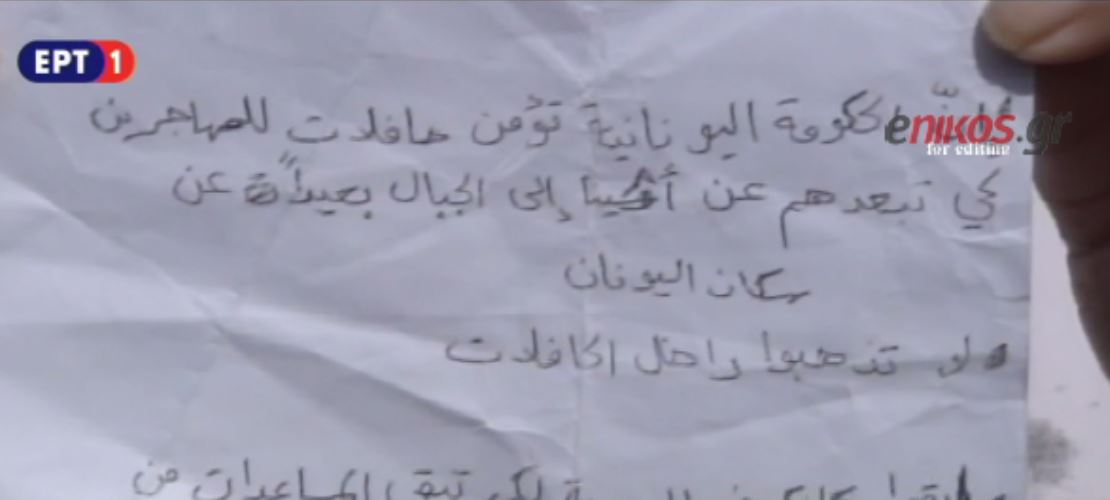 EPT 1
enikos.gr
for editing
الحكومة اليونانية تؤمن حافلات للمهاجرين
كي تبعدهم عن أثينا إلى الجبال بعيداً عن
سكان اليونان
لا تذهبوا داخل الحافلات
لكي تبقى المساعدات من